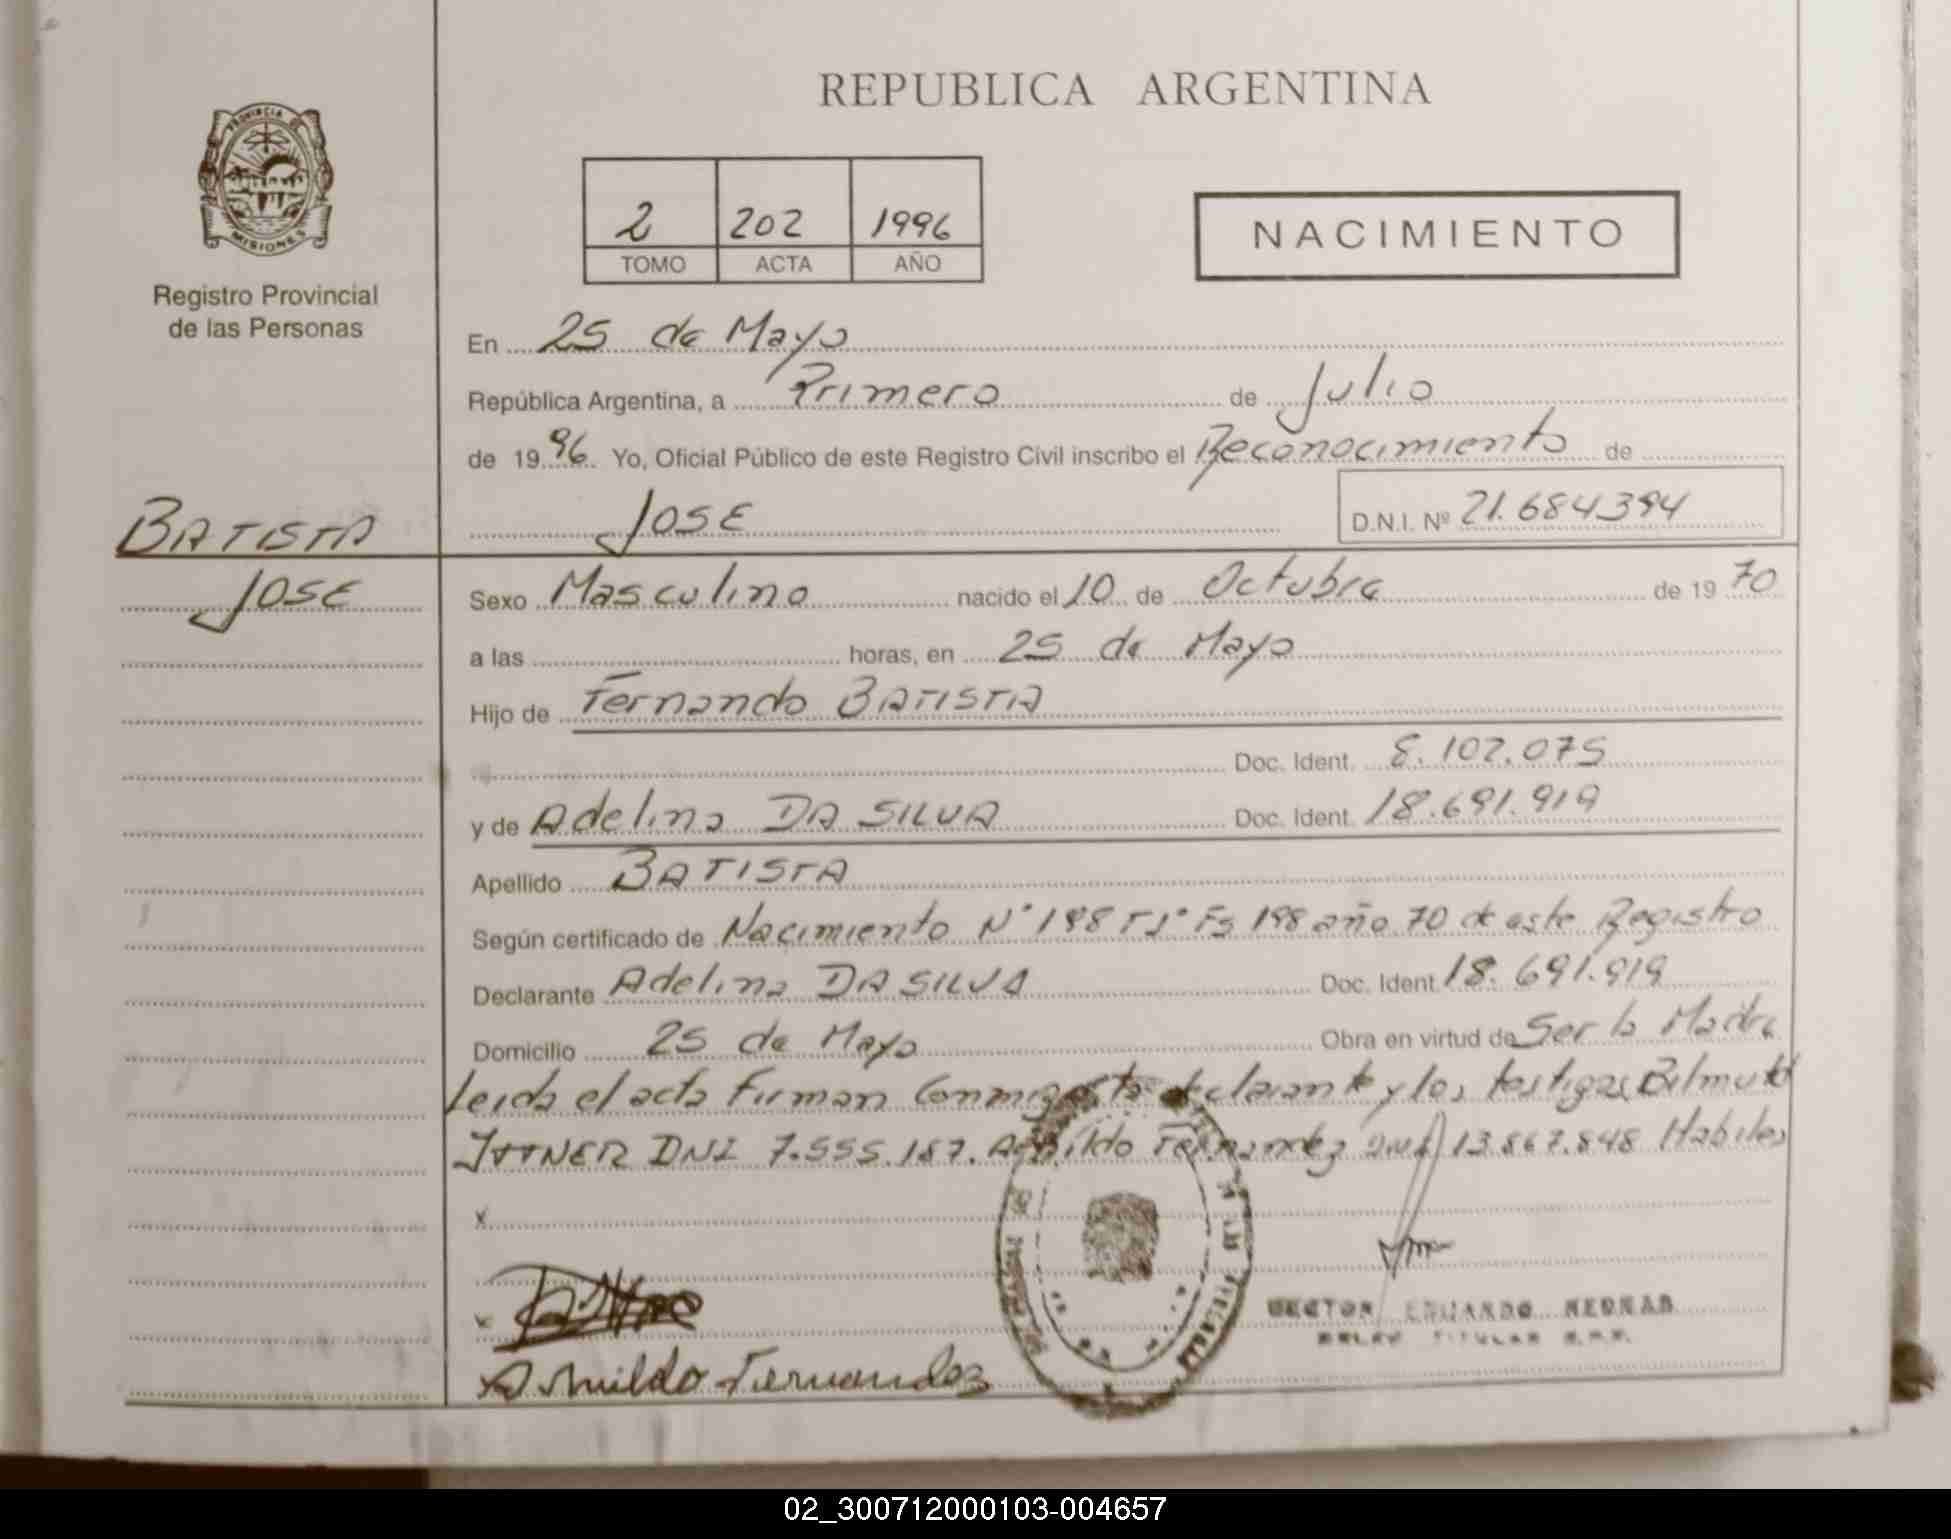 REPUBLICA ARGENTINA
PROVINCIA DE
MISIONES
Registro Provincial
de las Personas
2 202 1996
TOMO ACTA AÑO
NACIMIENTO
En 25 de Mayo
República Argentina, a Primero de Julio
de 1996 Yo, Oficial Público de este Registro Civil inscribo el Reconocimiento de
JOSE D.N.I. Nº 21.684394
BATISTA
JOSE
Sexo Masculino nacido el 10 de Octubre de 1970
a las horas, en 25 de Mayo
Hijo de Fernando BATISTA
Doc. Ident. 8.102.075
y de Adelina DA SILVA Doc. Ident. 18.691.919
Apellido BATISTA
Según certificado de Nacimiento N° 198 T1° Fs 198 año 70 de este Registro
Declarante Adelina DA SILVA Doc. Ident 18.691.919
Domicilio 25 de Mayo Obra en virtud de Ser la Madre
Leida el acta Firman Conmigo la declarante y los testigos
ITTNER DNI 7.555.187. Fernandez 13.867.848 Habiles
x
x
x Arnildo Fernandez
HECTOR EDUARDO
TITULAR
02_300712000103-004657